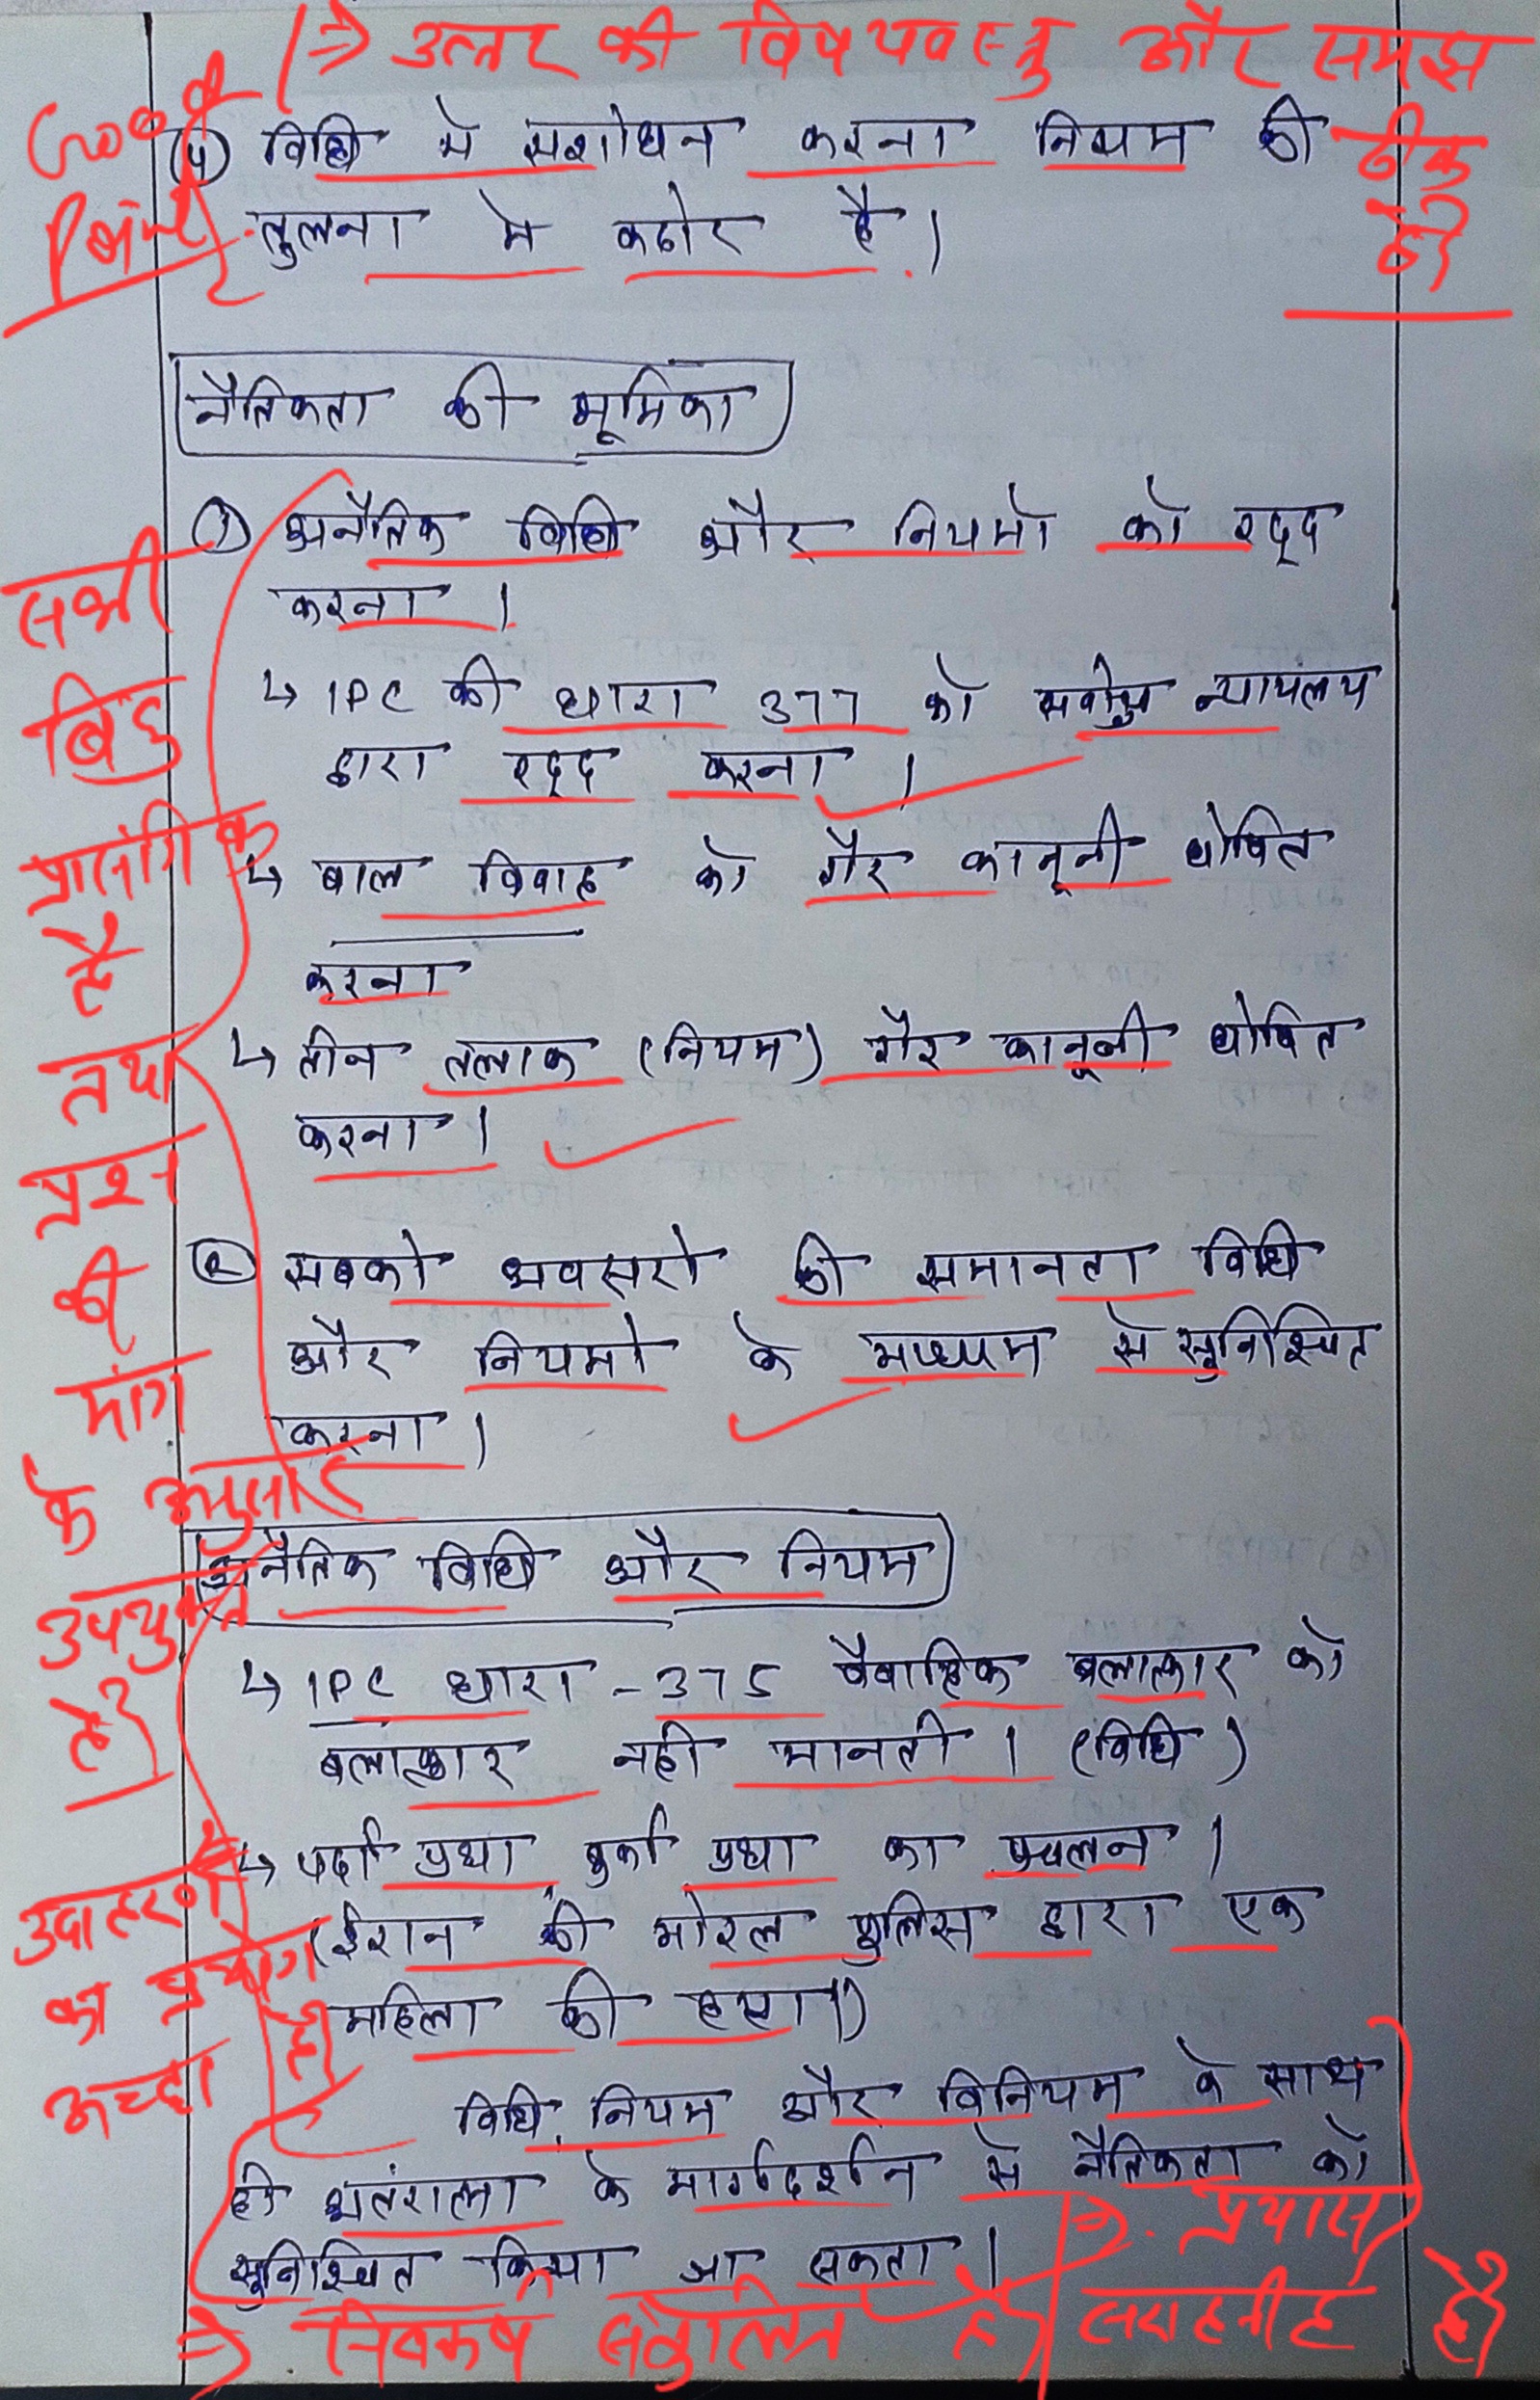 ⇒ उत्तर की विषयवस्तु और समझ
ठीक
है
Good
(4) विधि मे संशोधन करना नियम की
तुलना मे कठोर है।
नैतिकता की भूमिका
① अनैतिक विधि और नियमो को रद्द
करना।
↳ IPC की धारा 377 को सर्वोच्च न्यायलय
द्वारा रद्द करना।
↳ बाल विवाह को गैर कानूनी घोषित
करना
↳ तीन तलाक (नियम) गैर कानूनी घोषित
करना।
② सबको अवसरो की समानता विधि
और नियमो के माध्यम से सुनिश्चित
करना।
सभी
बिंदु
प्रासंगिक
है
तथा
प्रश्न
की
मांग
के अनुसार
उपयुक्त
है
अनैतिक विधि और नियम
↳ IPC धारा - 375 वैवाहिक बलात्कार को
बलात्कार नही मानती। (विधि)
↳ पर्दा प्रथा बुर्का प्रथा का प्रचलन।
(ईरान की मोरल पुलिस द्वारा एक
महिला की हत्या)
उदाहरण
का प्रयोग
अच्छा है
विधि, नियम और विनियम के साथ
ही अतंरात्मा के मार्गदर्शन से नैतिकता को
सुनिश्चित किया जा सकता।
⇒ निष्कर्ष संतुलित है
⇒ प्रयास
सराहनीह है